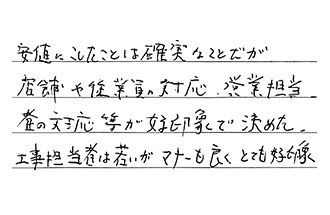 安値にしたことは確実なことだが
店舗や従業員の対応、営業担当
者の対応等が好印象で決めた。
工事担当者は若いがマナーも良くとても好印象